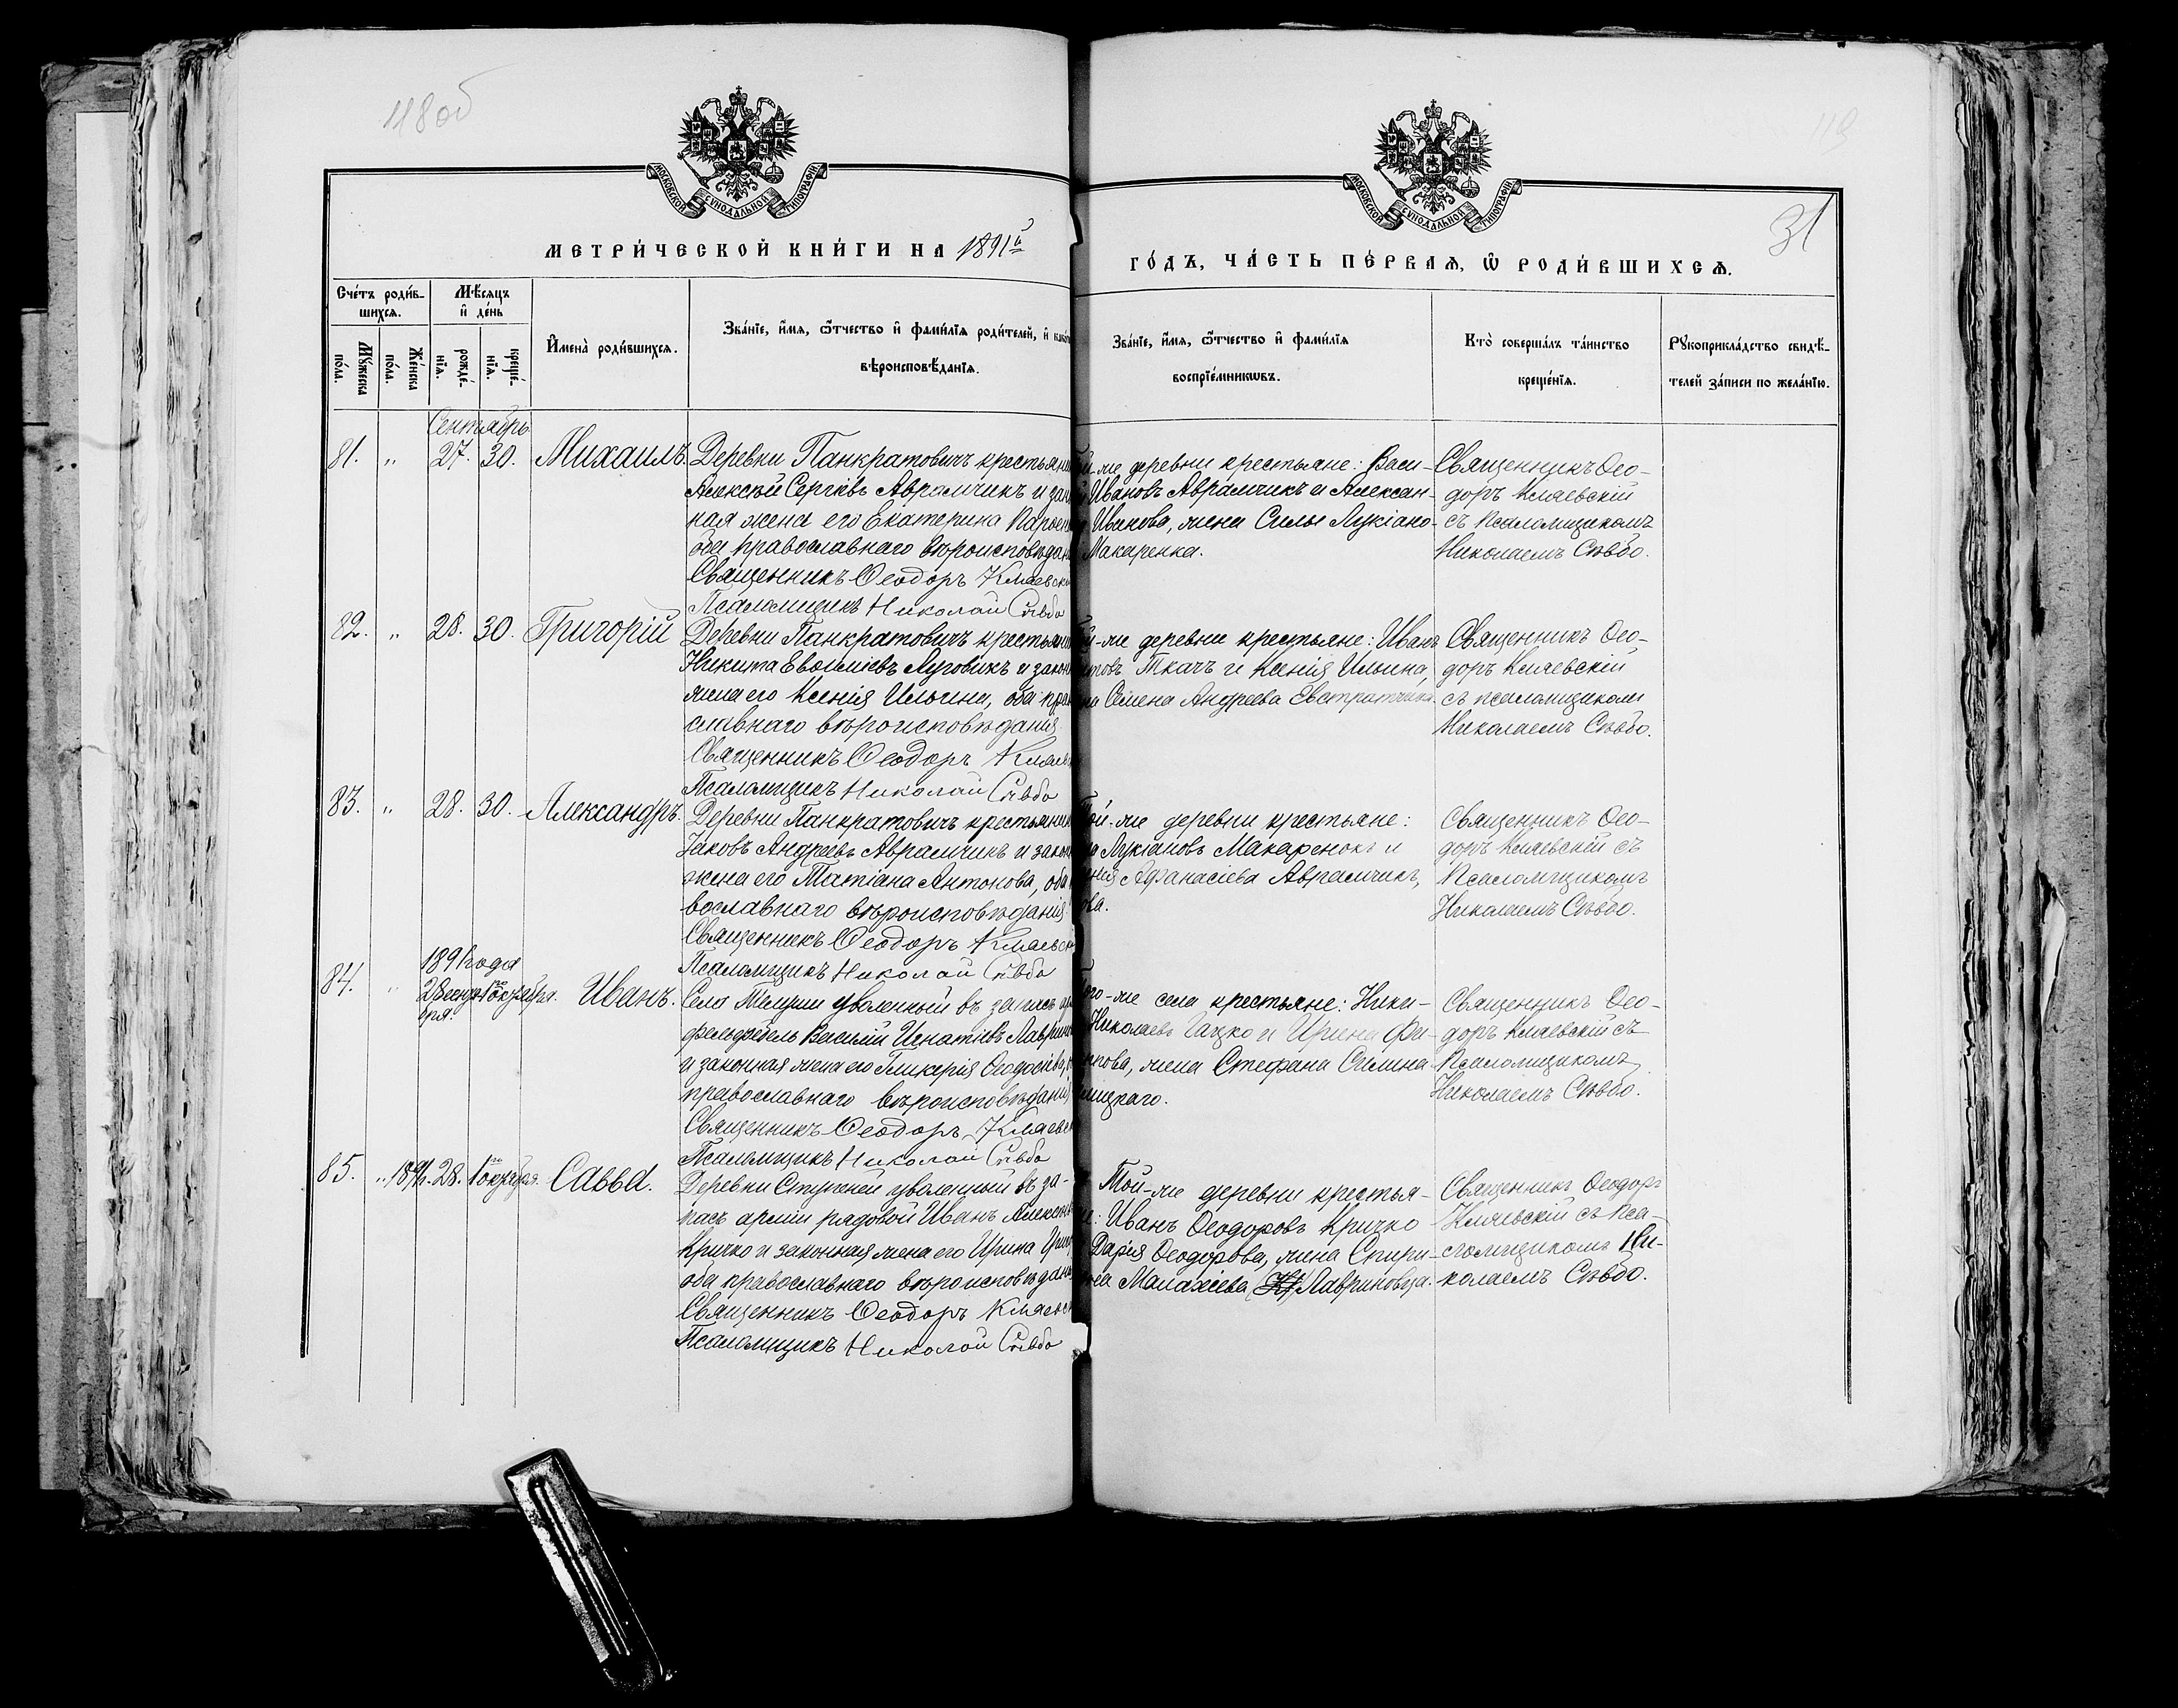 118 об
119
31
МОСКОВСКОЙ СУНОДАЛЬНОЙ ТИПОГРАФІИ
МОСКОВСКОЙ СУНОДАЛЬНОЙ ТИПОГРАФІИ
МЕТРИ́ЧЕСКОЙ КНИ́ГИ НА 1891й
ГО́ДЪ, ЧА́СТЬ ПЕ́РВАѦ, Ѡ҆ РОДИ́ВШИХСѦ.
Сче́тъ роди́в-
шихся.
Мѣ́сяцъ
и҆ де́нь
Мꙋ́жеска
по́ла.
Же́нска
по́ла.
рожде́-
нїѧ.
креще́-
нїѧ.
И҆мена̀ роди́вшихся.
Зва́нїе, и҆́мѧ, ѻ҆́тчество и҆ фами́лїѧ роди́телей, и҆ како́
вѣроисповѣ́данїѧ.
Зва́нїе, и҆́мѧ, ѻ҆́тчество и҆ фами́лїѧ
воспрїе́мникѡвъ.
Кто̀ соверша́лъ та́инство
креще́нїѧ.
Рꙋкоприкла́дство свидѣ́-
телей за́писи по жела́нїю.
Сентябрь
81. „ 27. 30. Михаилъ.
Деревни Панкратовичъ крестьяни
Алексѣй Сергіевъ Аврамчикъ и зак
ная жена его Екатерина Парѳен
оба православнаго вѣроисповѣдан
Священникъ Ѳеодоръ Кмаевск
Псаломщикъ Николай Сѣвбо
й-же деревни крестьяне: Васи-
Ивановъ Аврамчикъ и Алексан-
Иванова, жена Силы Лукіано-
Макаренка.
Священникъ Ѳео-
доръ Кмаевскій
съ псаломщикомъ
Николаемъ Сѣвбо.
82. „ 28. 30. Григорій
Деревни Панкратовичъ крестьяни
Никита Евѳиміевъ Луговикъ и закон
жена его Ксенія Ильина, оба пра
славнаго вѣроисповѣданія
Священникъ Ѳеодоръ Кмаев
Псаломщикъ Николай Сѣвбо
й-же деревни крестьяне: Иванъ
товъ Ткачъ и Ксенія Ильина,
на Семена Андреева Евстратчика.
Священникъ Ѳео-
доръ Кмаевскій
съ псаломщикомъ
Николаемъ Сѣвбо.
83. „ 28. 30. Александръ.
Деревни Панкратовичъ крестьянин
Іаковъ Андреевъ Аврамчикъ и закон
жена его Татіана Антонова, оба
вославнаго вѣроисповѣданія
Священникъ Ѳеодоръ Кмаевск
Псаломщикъ Николай Сѣвбо
Той-же деревни крестьяне:
Лукіановъ Макаренокъ и
нія Аѳанасіева Аврамчикъ,
ова.
Священникъ Ѳео-
доръ Кмаевскій съ
Псаломщикомъ
Николаемъ Сѣвбо.
1891 года
84. „ 28 сентя- 1го октября. Иванъ.
бря.
Села Телуши уволенный въ запасъ ар
фельдфебель Василій Игнатіевъ Лаврин
и законная жена его Гликерія Ѳеодосіева,
православнаго вѣроисповѣданія
Священникъ Ѳеодоръ Кмаевск
Псаломщикъ Николай Сѣвбо
го-же села крестьяне: Ники-
Николаевъ Гацко и Ирина Фи-
ппова, жена Стефана Силина
ицкаго.
Священникъ Ѳео-
доръ Кмаевскій съ
Псаломщикомъ
Николаемъ Сѣвбо.
85. „ 1891. 28. 1го октября. Савва.
Деревни Ступеней уволенный въ за-
пасъ арміи рядовой Иванъ Алексѣев
Кричко и законная жена его Ирина Григ
оба православнаго вѣроисповѣдан
Священникъ Ѳеодоръ Кмаевск
Псаломщикъ Николай Сѣвбо
Той-же деревни крестья-
не: Иванъ Ѳеодоровъ Кричко
Дарія Ѳеодорова, жена Спири-
она Малахіева Лавриновца.
Священникъ Ѳеодоръ
Кмаевскій съ Пса-
ломщикомъ Ни-
колаемъ Сѣвбо.